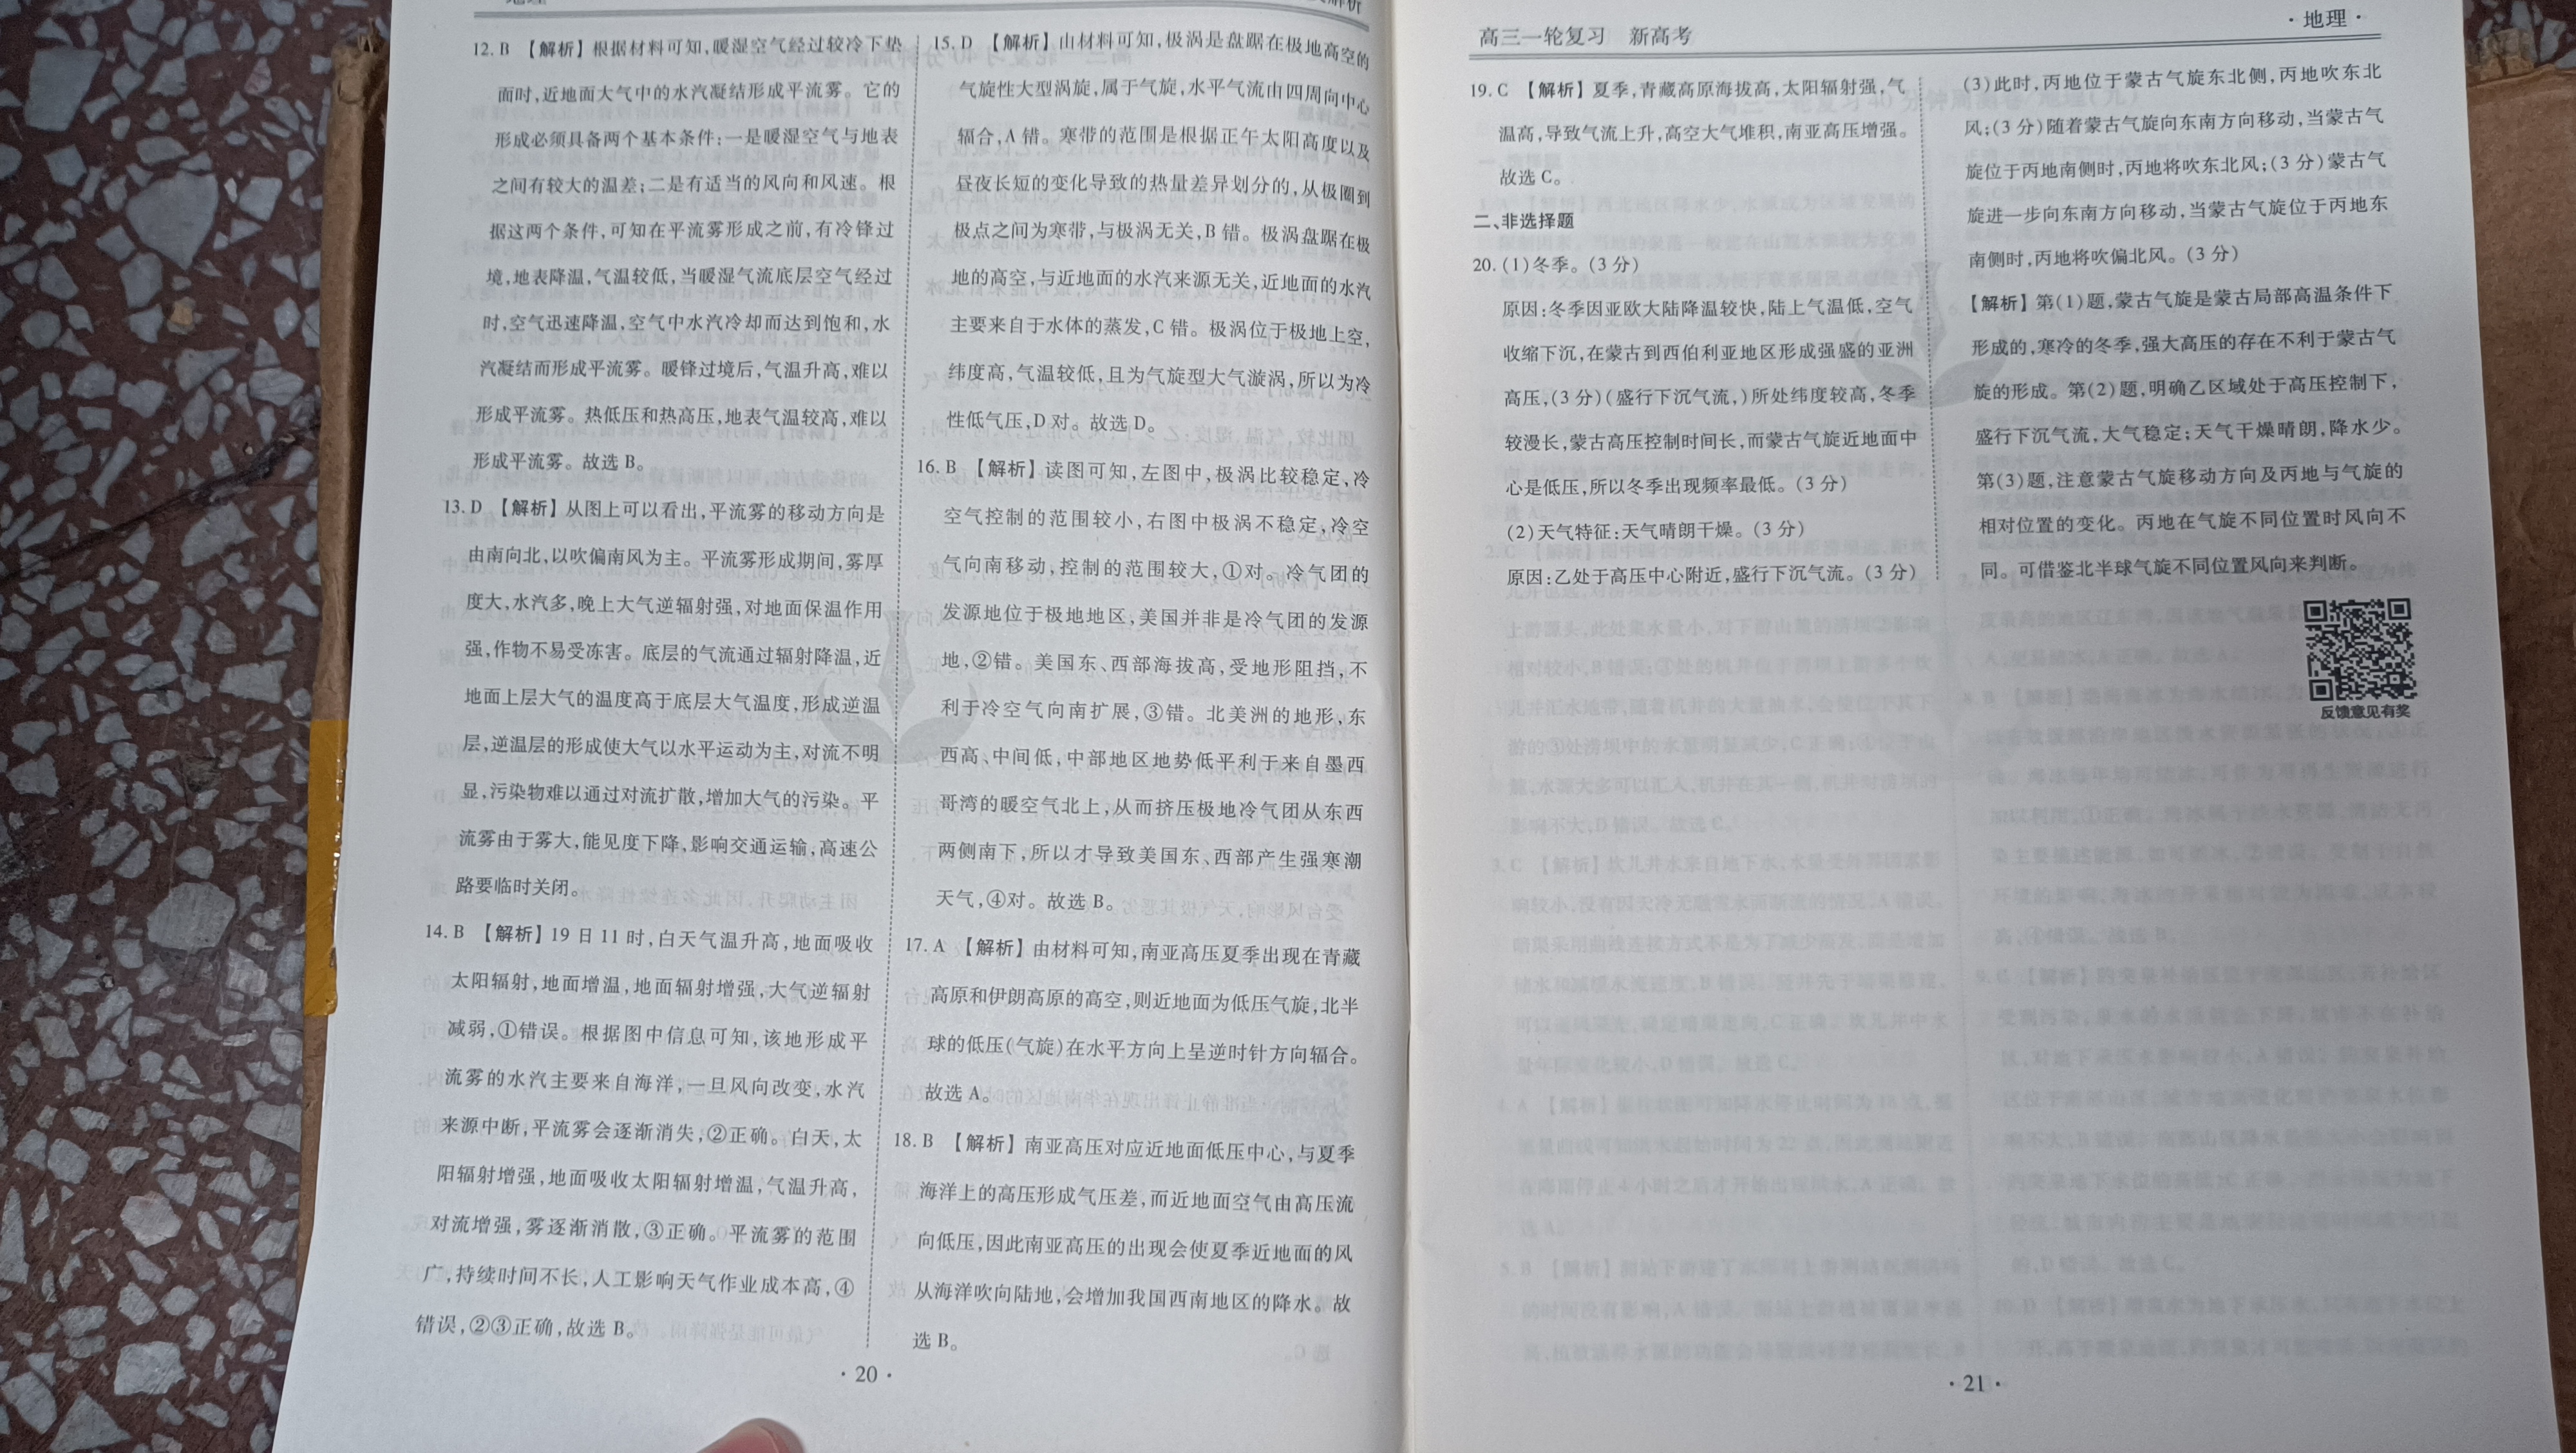 地理
12. B 【解析】根据材料可知,暖湿空气经过较冷下垫
面时,近地面大气中的水汽凝结形成平流雾。它的
形成必须具备两个基本条件:一是暖湿空气与地表
之间有较大的温差;二是有适当的风向和风速。根
据这两个条件,可知在平流雾形成之前,有冷锋过
境,地表降温,气温较低,当暖湿气流底层空气经过
时,空气迅速降温,空气中水汽冷却而达到饱和,水
汽凝结而形成平流雾。暖锋过境后,气温升高,难以
形成平流雾。热低压和热高压,地表气温较高,难以
形成平流雾。故选 B。
13. D 【解析】从图上可以看出,平流雾的移动方向是
由南向北,以吹偏南风为主。平流雾形成期间,雾厚
度大,水汽多,晚上大气逆辐射强,对地面保温作用
强,作物不易受冻害。底层的气流通过辐射降温,近
地面上层大气的温度高于底层大气温度,形成逆温
层,逆温层的形成使大气以水平运动为主,对流不明
显,污染物难以通过对流扩散,增加大气的污染。平
流雾由于雾大,能见度下降,影响交通运输,高速公
路要临时关闭。
14. B 【解析】19 日 11 时,白天气温升高,地面吸收
太阳辐射,地面增温,地面辐射增强,大气逆辐射
减弱,①错误。根据图中信息可知,该地形成平
流雾的水汽主要来自海洋,一旦风向改变,水汽
来源中断,平流雾会逐渐消失,②正确。白天,太
阳辐射增强,地面吸收太阳辐射增温,气温升高,
对流增强,雾逐渐消散,③正确。平流雾的范围
广,持续时间不长,人工影响天气作业成本高,④
错误,②③正确,故选 B。
15. D 【解析】由材料可知,极涡是盘踞在极地高空的
气旋性大型涡旋,属于气旋,水平气流由四周向中心
辐合,A 错。寒带的范围是根据正午太阳高度以及
昼夜长短的变化导致的热量差异划分的,从极圈到
极点之间为寒带,与极涡无关,B 错。极涡盘踞在极
地的高空,与近地面的水汽来源无关,近地面的水汽
主要来自于水体的蒸发,C 错。极涡位于极地上空,
纬度高,气温较低,且为气旋型大气漩涡,所以为冷
性低气压,D 对。故选 D。
16. B 【解析】读图可知,左图中,极涡比较稳定,冷
空气控制的范围较小,右图中极涡不稳定,冷空
气向南移动,控制的范围较大,①对。冷气团的
发源地位于极地地区,美国并非是冷气团的发源
地,②错。美国东、西部海拔高,受地形阻挡,不
利于冷空气向南扩展,③错。北美洲的地形,东
西高、中间低,中部地区地势低平利于来自墨西
哥湾的暖空气北上,从而挤压极地冷气团从东西
两侧南下,所以才导致美国东、西部产生强寒潮
天气,④对。故选 B。
17. A 【解析】由材料可知,南亚高压夏季出现在青藏
高原和伊朗高原的高空,则近地面为低压气旋,北半
球的低压(气旋)在水平方向上呈逆时针方向辐合。
故选 A。
18. B 【解析】南亚高压对应近地面低压中心,与夏季
海洋上的高压形成气压差,而近地面空气由高压流
向低压,因此南亚高压的出现会使夏季近地面的风
从海洋吹向陆地,会增加我国西南地区的降水。故
选 B。
· 20 ·
高三一轮复习 新高考
· 地理 ·
19. C 【解析】夏季,青藏高原海拔高,太阳辐射强,气
温高,导致气流上升,高空大气堆积,南亚高压增强。
故选 C。
二、非选择题
20. (1)冬季。(3 分)
原因:冬季因亚欧大陆降温较快,陆上气温低,空气
收缩下沉,在蒙古到西伯利亚地区形成强盛的亚洲
高压,(3 分)(盛行下沉气流,)所处纬度较高,冬季
较漫长,蒙古高压控制时间长,而蒙古气旋近地面中
心是低压,所以冬季出现频率最低。(3 分)
(2)天气特征:天气晴朗干燥。(3 分)
原因:乙处于高压中心附近,盛行下沉气流。(3 分)
(3)此时,丙地位于蒙古气旋东北侧,丙地吹东北
风;(3 分)随着蒙古气旋向东南方向移动,当蒙古气
旋位于丙地南侧时,丙地将吹东北风;(3 分)蒙古气
旋进一步向东南方向移动,当蒙古气旋位于丙地东
南侧时,丙地将吹偏北风。(3 分)
【解析】第(1)题,蒙古气旋是蒙古局部高温条件下
形成的,寒冷的冬季,强大高压的存在不利于蒙古气
旋的形成。第(2)题,明确乙区域处于高压控制下,
盛行下沉气流,大气稳定;天气干燥晴朗,降水少。
第(3)题,注意蒙古气旋移动方向及丙地与气旋的
相对位置的变化。丙地在气旋不同位置时风向不
同。可借鉴北半球气旋不同位置风向来判断。
反馈意见有奖
· 21 ·